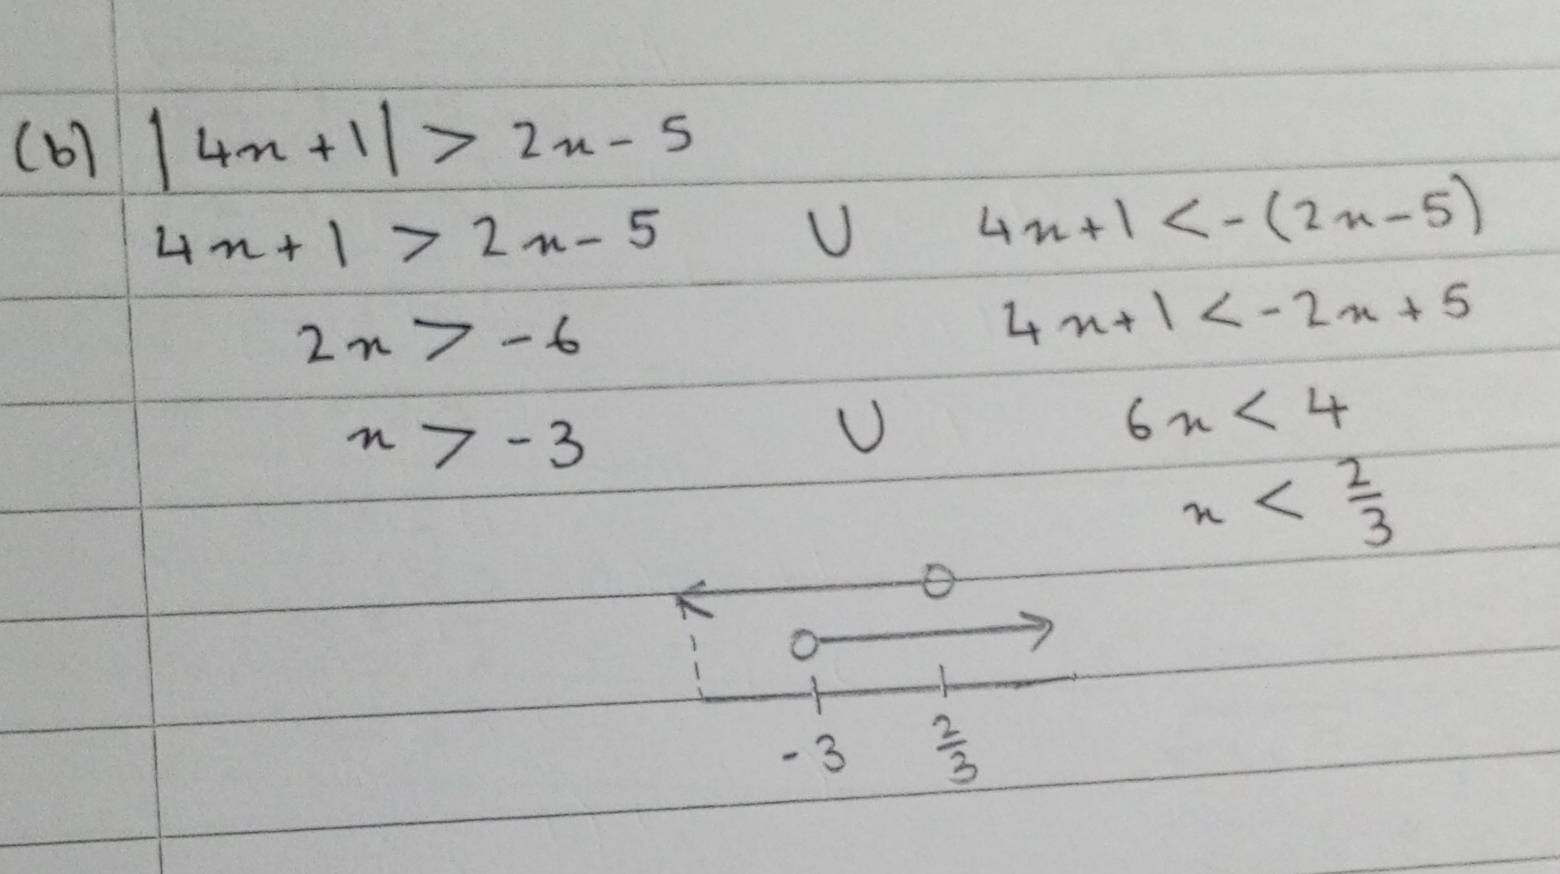 (b) |4x+1| > 2x-5
4x+1 > 2x-5 ∪ 4x+1 < -(2x-5)
2x > -6 4x+1 < -2x+5
x > -3 ∪ 6x < 4
x < 2/3
-3 2/3